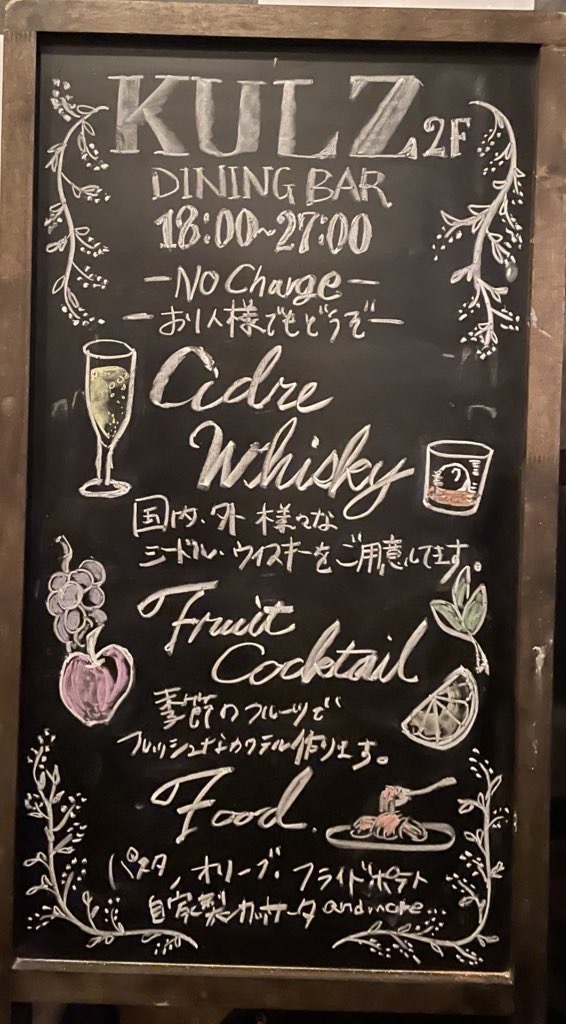 KULZ 2F
DINING BAR
18:00~27:00
-NO Charge-
-お1人様でもどうぞ-
Cidre
Whisky
国内、外 様々な
シードル・ウイスキーをご用意してます。
Fruit
Cocktail
季節のフルーツで
フレッシュなカクテル作ります。
Food.
パスタ, オリーブ・フライドポテト
自家製カッサータ and more...